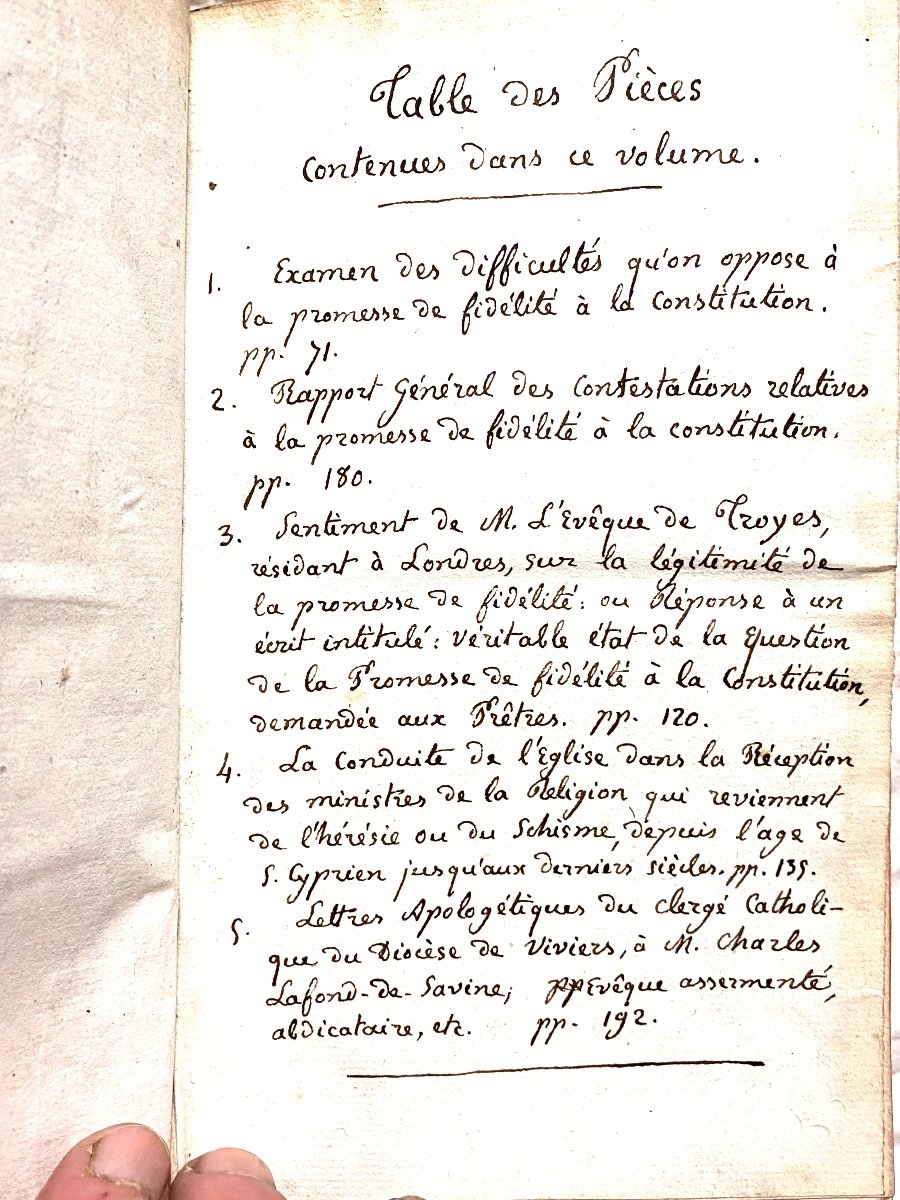 Table des Pièces
contenues dans ce volume.
1. Examen des difficultés qu'on oppose à
la promesse de fidélité à la constitution.
pp. 71.
2. Rapport Général des contestations relatives
à la promesse de fidélité à la constitution.
pp. 180.
3. Sentiment de M. L'Evêque de Troyes,
résidant à Londres, sur la légitimité de
la promesse de fidélité: ou Réponse à un
écrit intitulé: véritable état de la Question
de la Promesse de fidélité à la Constitution,
demandée aux Prêtres. pp. 120.
4. La Conduite de l'Eglise dans la Réception
des ministres de la Religion qui reviennent
de l'hérésie ou du Schisme, depuis l'age de
S. Cyprien jusqu'aux derniers siècles. pp. 135.
5. Lettres Apologétiques du clergé Catholi-
que du Diocèse de Viviers, à M. Charles
Lafond-de-Savine; Evêque assermenté,
abdicataire, etc. pp. 192.